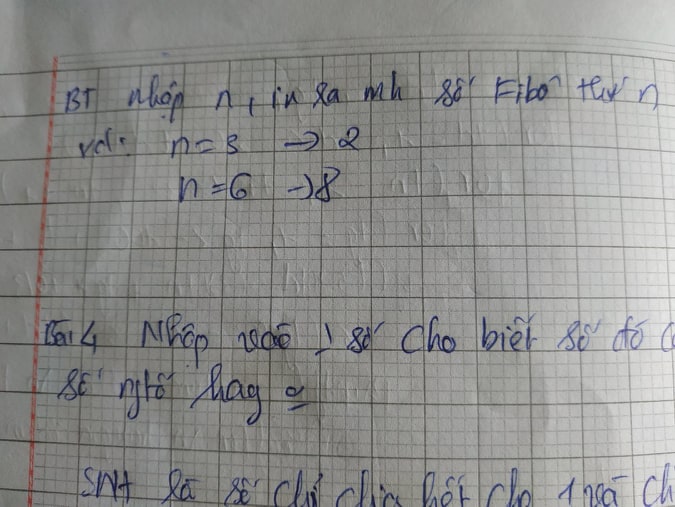 BT nhập n, in ra mh số Fibô thứ n
vd: n=3 → 2
n=6 → 8
Bài 4 Nhập vào 1 số cho biết số đó
số ngtố hay
SNT là số chỉ chia hết cho 1 và